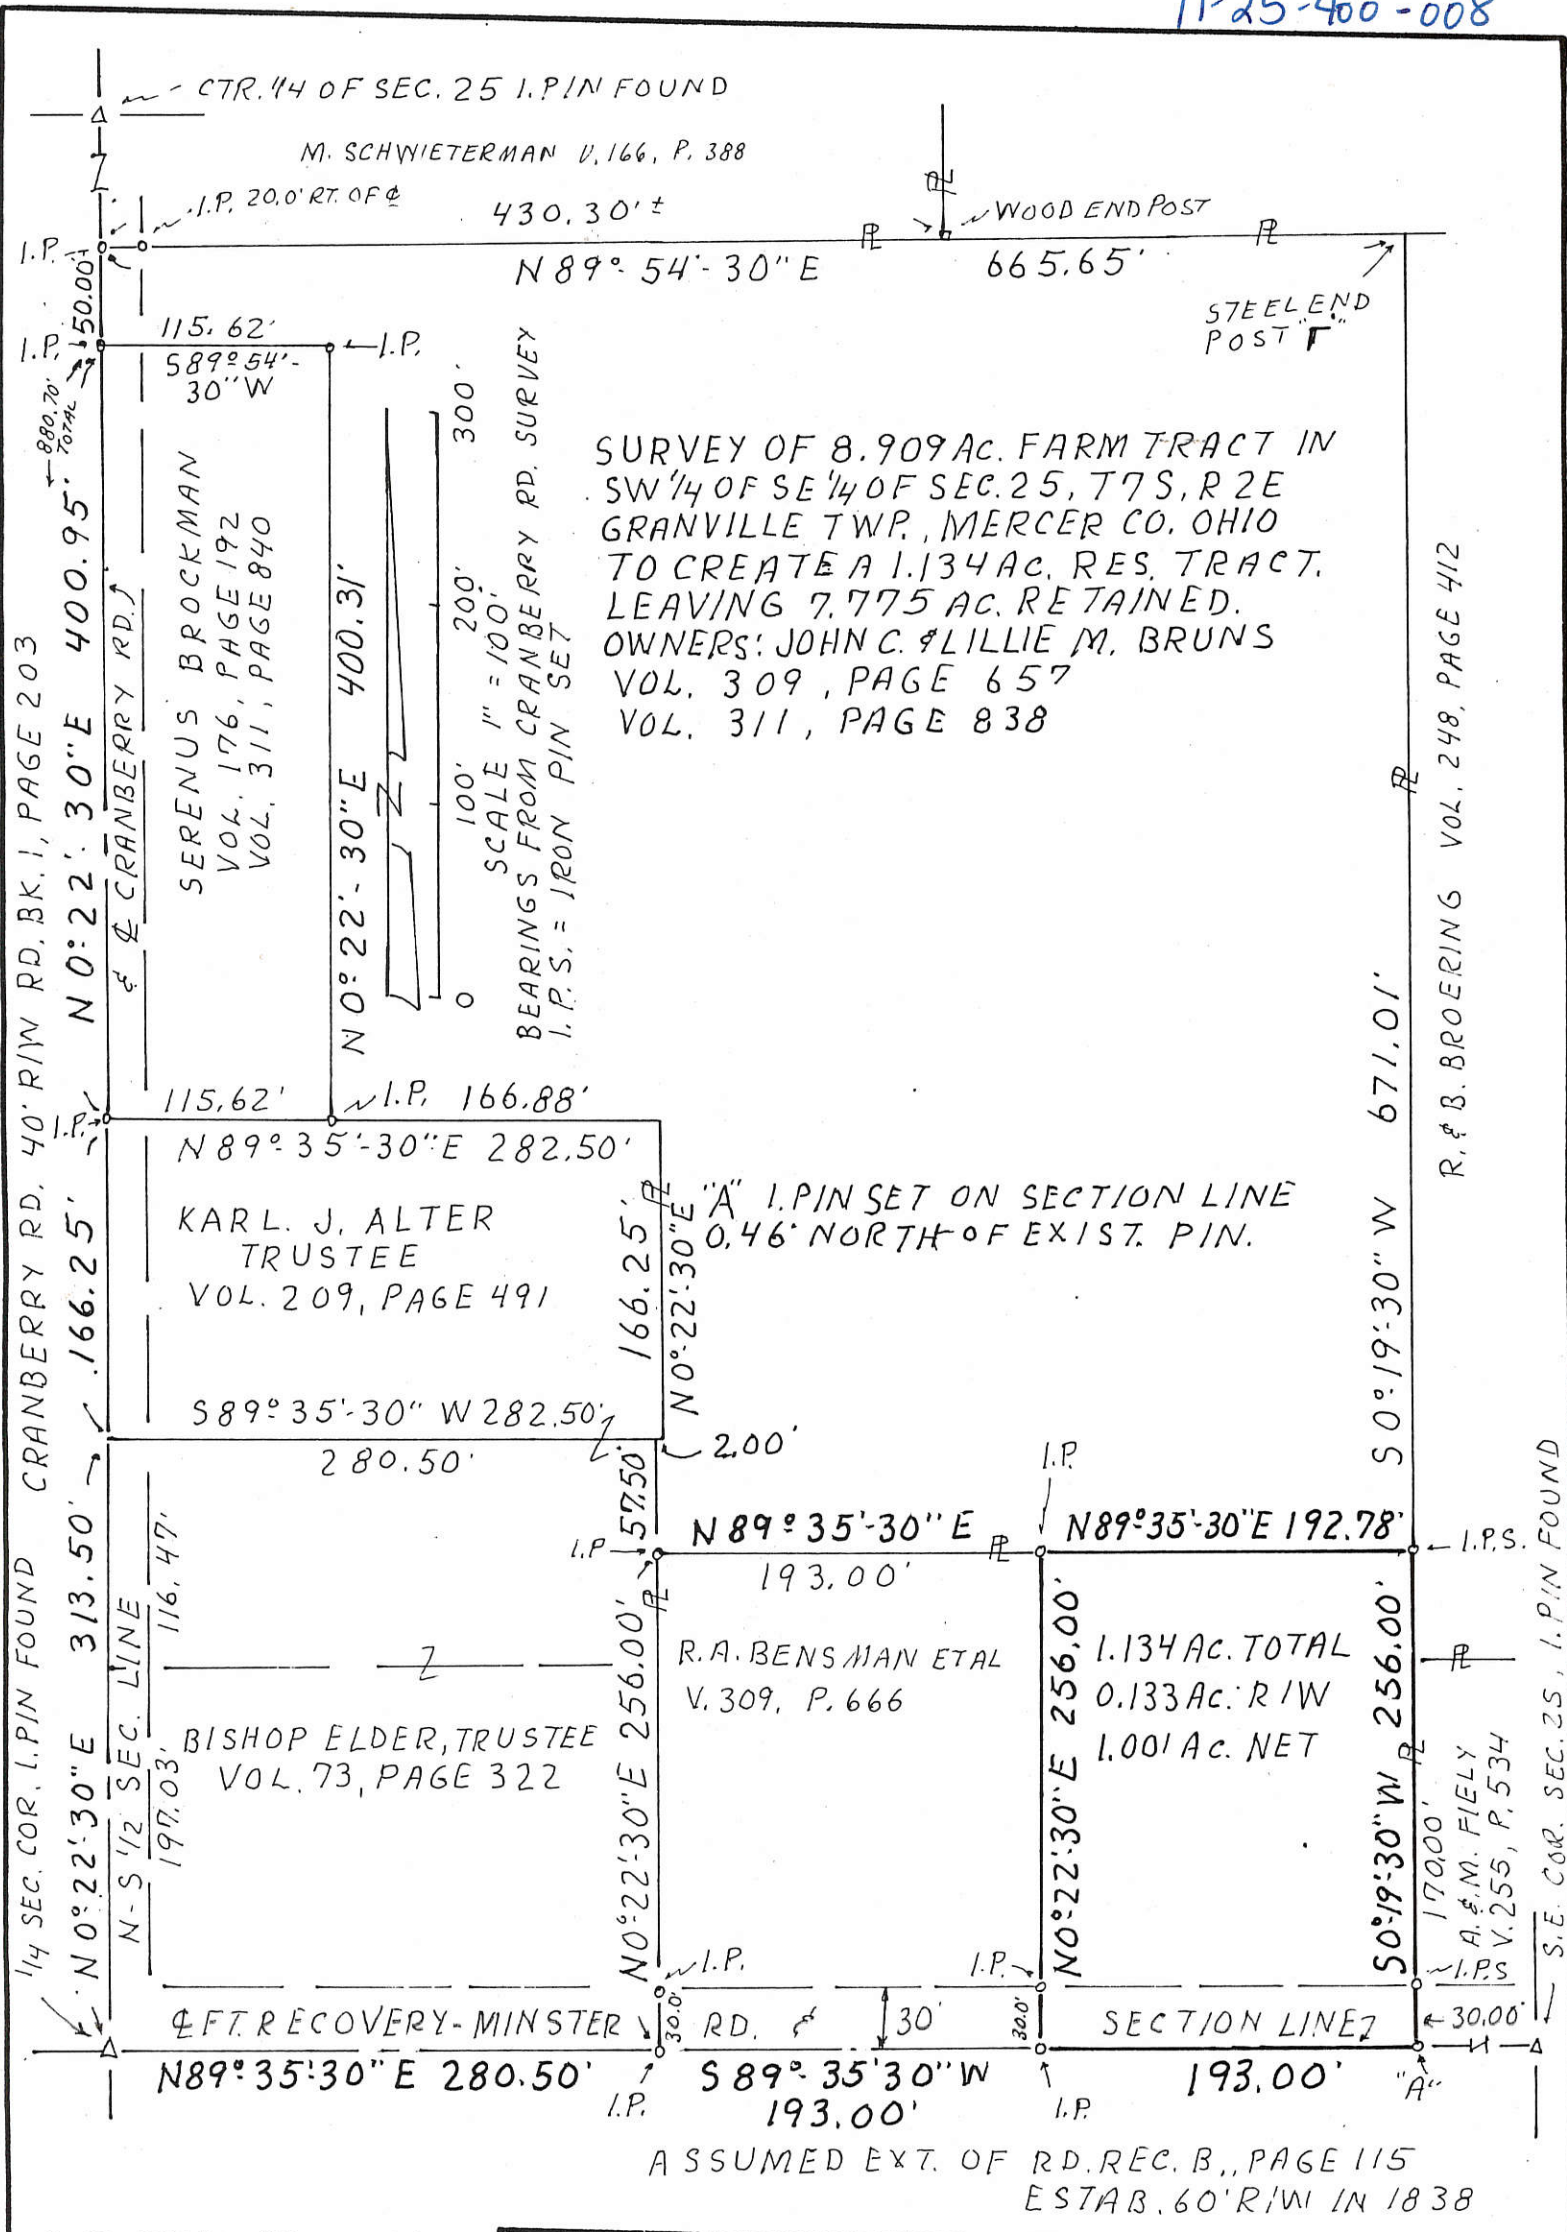 11-25-400-008
CTR. 1/4 OF SEC. 25 I. PIN FOUND
M. SCHWIETERMAN V. 166, P. 388
I.P. 20.0' RT. OF ℄
430.30'±
WOOD END POST
I.P.
N 89°-54'-30" E
665.65'
STEEL END
POST "T"
50.00'
I.P.
115.62'
I.P.
S89°54'-
30"W
880.70'
TOTAL
400.95'
N 0°-22'-30" E
& ℄ CRANBERRY RD.
SERENUS BROCKMAN
VOL. 176, PAGE 192
VOL. 311, PAGE 840
N 0°-22'-30" E 400.31'
0 100' 200' 300'
SCALE 1" = 100'
BEARINGS FROM CRANBERRY RD. SURVEY
I.P.S. = IRON PIN SET
SURVEY OF 8.909 AC. FARM TRACT IN
SW 1/4 OF SE 1/4 OF SEC. 25, T7S, R2E
GRANVILLE TWP., MERCER CO. OHIO
TO CREATE A 1.134 AC. RES. TRACT.
LEAVING 7.775 AC. RETAINED.
OWNERS: JOHN C. & LILLIE M. BRUNS
VOL. 309, PAGE 657
VOL. 311, PAGE 838
R. & B. BROERING VOL. 248, PAGE 412
S 0°-19'-30" W 671.01'
CRANBERRY RD. 40' R/W RD. BK. 1, PAGE 203
I.P.
115.62'
I.P.
166.88'
N 89°-35'-30" E 282.50'
KARL. J. ALTER
TRUSTEE
VOL. 209, PAGE 491
166.25'
166.25'
N0°-22'-30"E
"A" I. PIN SET ON SECTION LINE
0.46' NORTH OF EXIST. PIN.
S 89°35'-30" W 282.50'
280.50'
2.00'
57.50'
I.P.
I.P.
N 89°35'-30" E
193.00'
N89°35'-30"E 192.78'
I.P.S.
1/4 SEC. COR. I. PIN FOUND
N 0°22'-30" E 313.50'
N-S 1/2 SEC. LINE
116.47'
197.03'
BISHOP ELDER, TRUSTEE
VOL. 73, PAGE 322
N0°22'-30"E 256.00'
R.A. BENSMAN ETAL
V. 309, P. 666
N0°22'-30"E 256.00'
1.134 AC. TOTAL
0.133 AC. R/W
1.001 AC. NET
S0°-19'-30" W 256.00'
170.00'
A. & M. FIELY
V. 255, P. 534
S.E. COR. SEC. 25, I. PIN FOUND
I.P.
I.P.
I.P.S
℄ FT. RECOVERY-MINSTER
30.0'
RD. &
30'
30.0'
SECTION LINE
30.00'
N89°-35'-30" E 280.50'
I.P.
S 89°-35'30" W
193.00'
I.P.
193.00'
"A"
ASSUMED EXT. OF RD. REC. B., PAGE 115
ESTAB. 60' R/W IN 1838